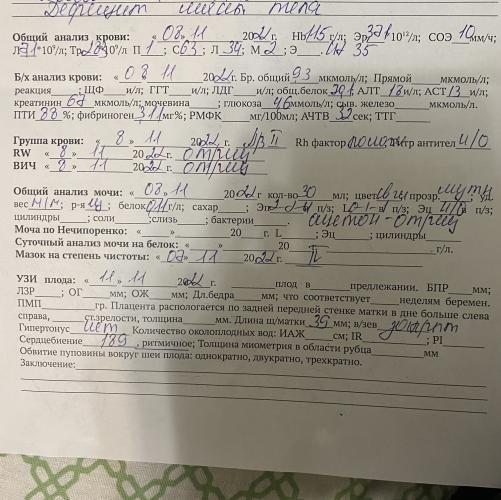 Дефицит массы тела
Общий анализ крови: « 08 » 11 2022 г. Hb 115 г/л; Эр 3,71 10¹²/л; СОЭ 10 мм/ч;
Л 7,1 10⁹/л; Тр 10⁹/л П 1 ; С 63 ; Л 34 ; М 2 ; Э 35
Б/х анализ крови: « 08 11 2022 г. Бр. общий 9,3 мкмоль/л; Прямой мкмоль/л;
реакция ; ЩФ и/л; ГГТ и/л; ЛДГ и/л; общ.белок АЛТ 18 и/л; АСТ 13 и/л;
креатинин 67 мкмоль/л; мочевина ; глюкоза ммоль/л; сыв. железо мкмоль/л.
ПТИ 88 %; фибриноген 311 мг%; РМФК мг/100мл; АЧТВ 32 сек; ТТГ
Группа крови: « 8 » 11 2022 г. II Rh фактор титр антител
RW « 8 » 11 2022 г. отриц
ВИЧ « 8 » 11 2022 г. отриц
Общий анализ мочи: « 08 » 11 2022 кол-во 30 мл; цвет прозр. мутн уд.
вес м/м; р-я ; белок г/л; сахар ; Эп п/з; п/з; Эц п/з;
цилиндры ; соли ; слизь ; бактерии . ацетон-отриц
Моча по Нечипоренко: « » 20 г. L ; Эц ; цилиндры
Суточный анализ мочи на белок: « » 20 г/л.
Мазок на степень чистоты: « 07 » 11 2022 г. II
УЗИ плода: « 11 » 11 2022 г. плод в предлежании. БПР мм;
ЛЗР ; ОГ мм; ОЖ мм; Дл.бедра мм; что соответствует неделям беремен.
ПМП гр. Плацента распологается по задней передней стенке матки в дне больше слева
справа, ст.зрелости, толщина мм. Длина ш/матки 39 мм; в/зев закрыт
Гипертонус нет Количество околоплодных вод: ИАЖ см; IR ; PI
Сердцебиение 189 , ритмичное; Толщина миометрия в области рубца мм
Обвитие пуповины вокруг шеи плода: однократно, двукратно, трехкратно.
Заключение: